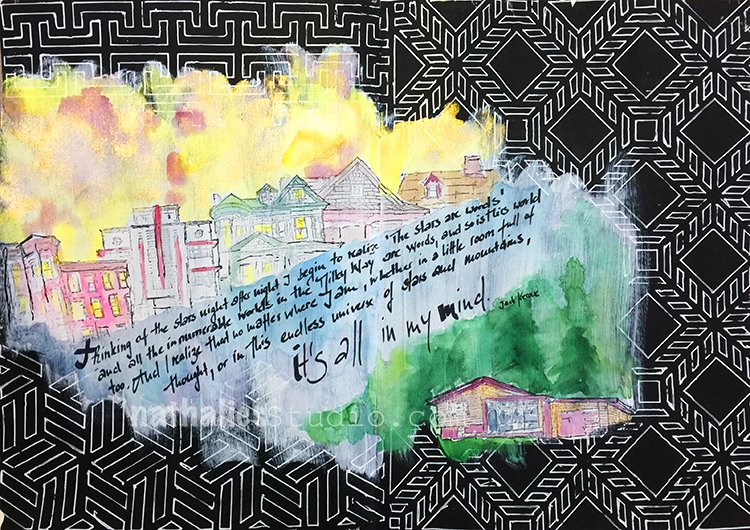 Thinking of the stars night after night I begin to realize 'The stars are words'
and all the innumerable worlds in the Milky Way are words, and so is this world
too. And I realize that no matter where I am, whether in a little room full of
thought, or in this endless universe of stars and mountains,
it's all in my mind
Jack Kerouac
nathaliesstudio.c